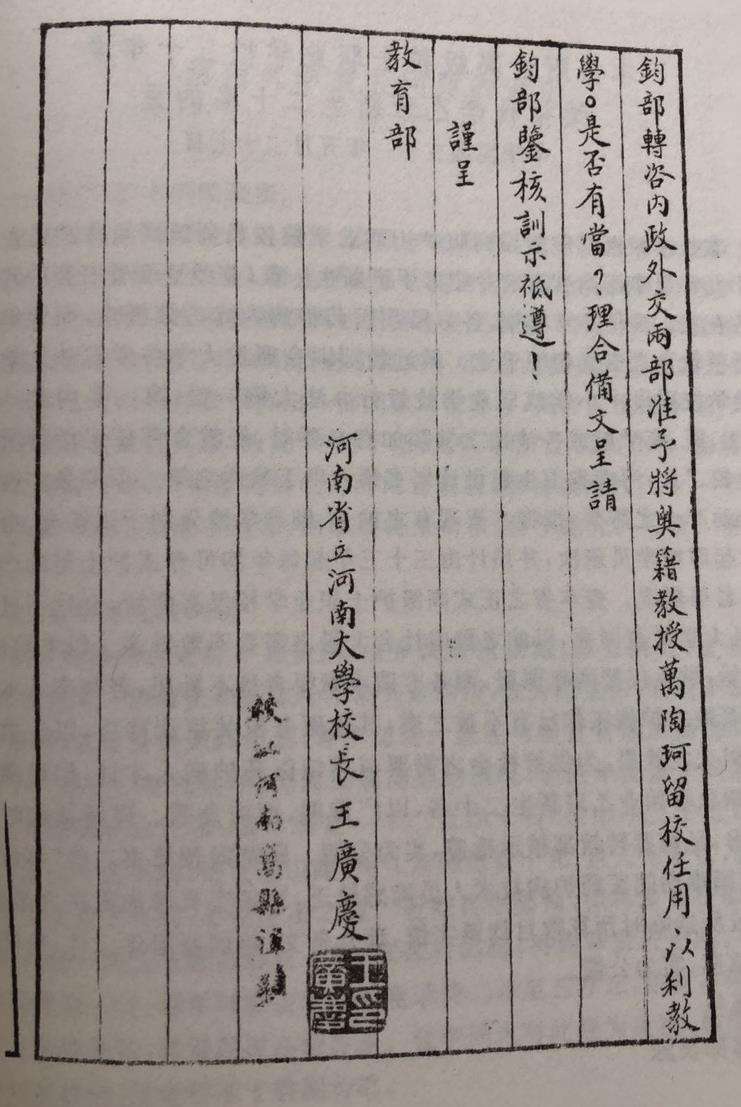 鈞部轉咨内政外交兩部准予將奧籍教授萬陶珂留校任用以利教
學。是否有當？理合備文呈請
鈞部鑒核訓示祗遵！
謹呈
教育部
河南省立河南大學校長王廣慶
校址河南嵩縣潭頭
王廣慶印